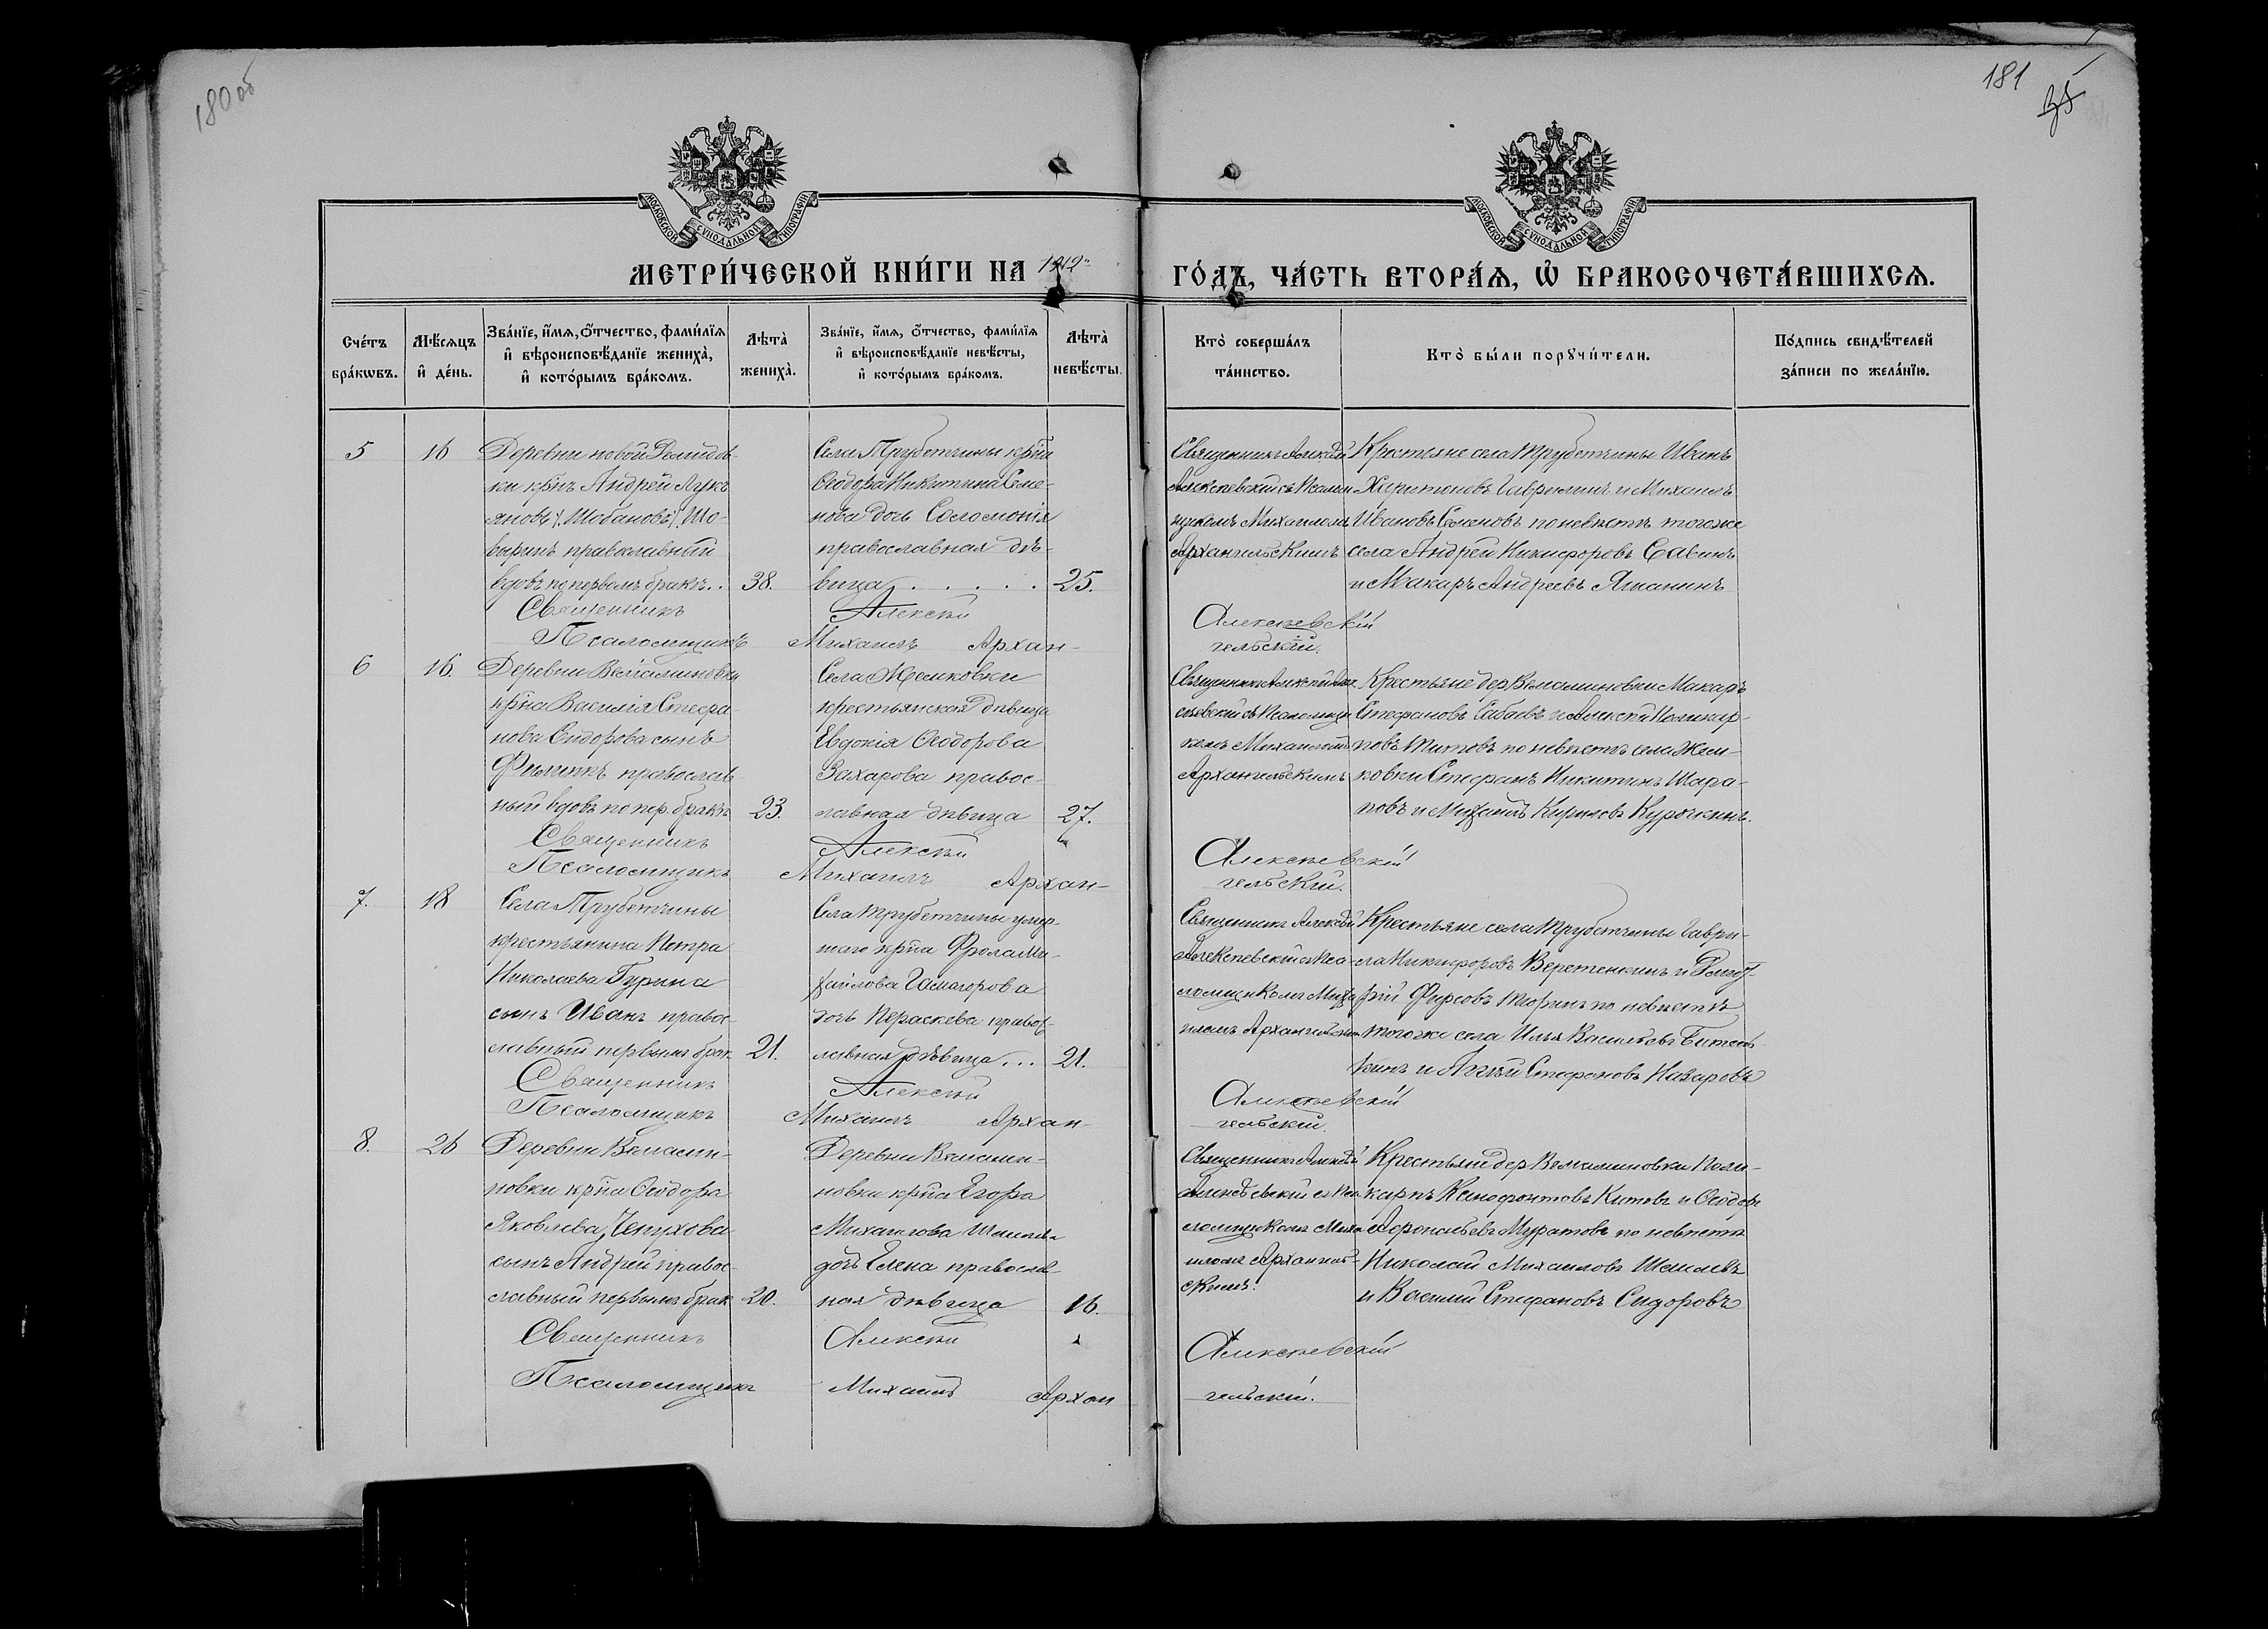 180об
181
35
МОСКОВСКОЙ СѴНОДАЛЬНОЙ ТИПОГРАФІИ
МОСКОВСКОЙ СѴНОДАЛЬНОЙ ТИПОГРАФІИ
МЕТРИ́ЧЕСКОЙ КНИ́ГИ НА 1912 ГО́ДЪ, ЧА́СТЬ ВТОРА́Ѧ, Ѡ҆ БРАКОСОЧЕТА́ВШИХСѦ.
Сче́тъ бра́кѡвъ.
Мѣ́сѧцъ и҆ де́нь.
Зва́нїе, и҆́мѧ, ѻ҆́тчество, фами́лїѧ и҆ вѣроисповѣ́данїе жениха̀, и҆ кото́рымъ бра́комъ.
Лѣта̀ жениха̀.
Зва́нїе, и҆́мѧ, ѻ҆́тчество, фами́лїѧ и҆ вѣроисповѣ́данїе невѣ́сты, и҆ кото́рымъ бра́комъ.
Лѣта̀ невѣ́сты.
Кто̀ соверша́лъ та́инство.
Кто̀ бы́ли порꙋчи́тели.
По́дпись свидѣ́телей за́писи по жела́нїю.
5
16
Деревни новой Демидов-
ки кр̃нъ Андрей Лукь
яновъ (Шобановъ)
православный
вдовъ по первомъ бракѣ..
38.
Села Трубетчины кр̃на
Ѳеодора Никитина Семе-
нова дочь Соломонія
православная дѣ-
вица . . . . .
25.
Священникъ Алексѣй
Алексѣевскій съ Псалом
щикомъ Михаиломъ
Архангельскимъ
Крестьяне села Трубетчины Иванъ
Харитоновъ Гаврилинъ и Михаилъ
Ивановъ Семеновъ по невѣстѣ тогоже
села Андрей Никифоровъ Савинъ
и Макаръ Андреевъ Яманинъ
Священникъ Алексѣй Алексѣевскій
Псаломщикъ Михаилъ Архангельскій.
6
16.
Деревни Вельяминовки
кр̃на Василія Стефа-
нова Сидорова сынъ
Филиппъ православ
ный вдовъ по пер. бракѣ
23.
Села Жемковки
крестьянская дѣвица
Евдокія Ѳеодорова
Захарова правос-
лавная дѣвица
27.
Священникъ Алексѣй Алек
сѣевскій съ Псаломщи
комъ Михаиломъ
Архангельскимъ
Крестьяне дер Вельяминовки Макаръ
Стефановъ Сабаевъ и Алексѣй Поликар-
повъ Титовъ по невѣстѣ села Жем-
ковки Стефанъ Никитинъ Шара-
повъ и Михаилъ Кириловъ Курочкинъ.
Священникъ Алексѣй Алексѣевскій
Псаломщикъ Михаилъ Архан-гельскій.
7.
18
Села Трубетчины
крестьянина Петра
Николаева Гурина
сынъ Иванъ правос-
лавный первымъ брак
21.
Села Трубетчины умер-
шаго кр̃на Фрола Ми-
хайлова
дочь Параскева правос-
лавная дѣвица ...
21.
Священникъ Алексѣй
Алексѣевскій съ Пса-
ломщикомъ Миха
иломъ Архангельским
Крестьяне села Трубетчины Гаври-
ла Никифоровъ Веретенкинъ и Дмит-
рій Фирсовъ Тюринъ по невѣстѣ
тогоже села Илья Васильевъ
и Стефановъ Назаровъ
Священникъ Алексѣй Алексѣевскій
Псаломщикъ Михаилъ Архан-гельскій.
8.
26
Деревни Вельями-
новки кр̃на Ѳеодора
Яковлева Чепухова
сынъ Андрей правос-
лавный первымъ брак
20.
Деревни Вельями-
новки кр̃на Егора
Михаилова
дочь Елена православ-
ная дѣвица
16.
Священникъ Алексѣй
Алексѣевскій съ Пса
ломщикомъ Миха
иломъ Архангель-
скимъ.
Крестьяне дер Вельяминовки Поли-
карпъ Ксенофонтовъ Китовъ и Ѳеодоръ
Афонасьевъ Муратовъ по невѣстѣ
Николай Михаиловъ
и Василій Стефановъ Сидоровъ
Священникъ Алексѣй Алексѣевскій
Псаломщикъ Михаилъ Архангельскій.